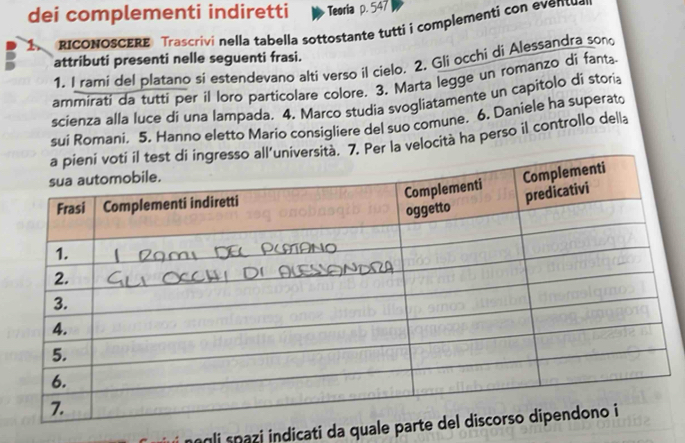 dei complementi indiretti
Teoria p. 547
1. RICONOSCERE Trascrivi nella tabella sottostante tutti i complementi con eventuali
attributi presenti nelle seguenti frasi.
1. I rami del platano si estendevano alti verso il cielo. 2. Gli occhi di Alessandra sono
ammirati da tutti per il loro particolare colore. 3. Marta legge un romanzo di fanta-
scienza alla luce di una lampada. 4. Marco studia svogliatamente un capitolo di storia
sui Romani. 5. Hanno eletto Mario consigliere del suo comune. 6. Daniele ha superato
a pieni voti il test di ingresso all'università. 7. Per la velocità ha perso il controllo della
sua automobile.
Frasi Complementi indiretti Complementi oggetto Complementi predicativi
1. I RAMI DEL PLATANO
2. GLI OCCHI DI ALESSANDRA
3.
4.
5.
6.
7.
negli spazi indicati da quale parte del discorso dipendono i